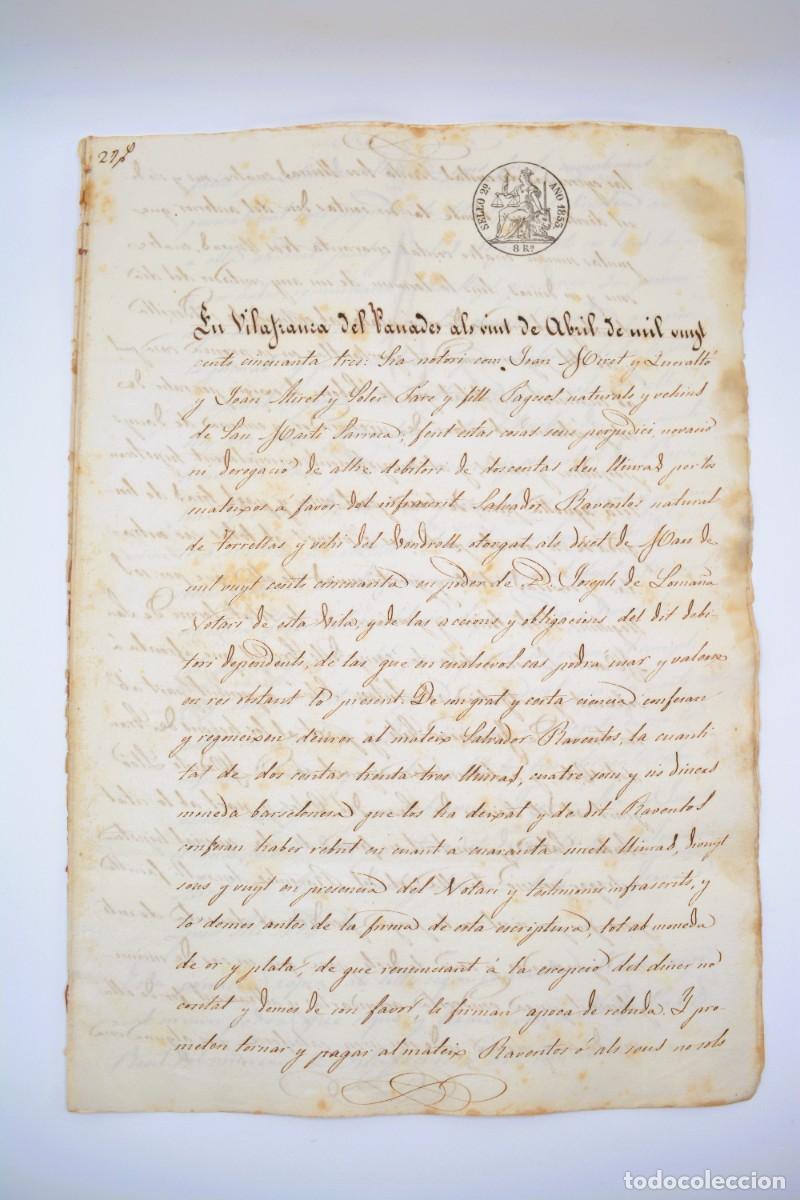 SELLO 2º AÑO 1853
8 Rs
En Vilafranca del Panades als vint de Abril de mil vuyt
cents cincuanta tres: Sia notori com, Joan Miret y Queraltó
y Joan Miret y Soler Pare y fill Pagesos naturals y vehins
de San Marti Sarroca, sens estas cosas sens perjudici, novació
ni derogació de altre debitori de doscentas deu lliuras per los
mateixos á favor del infrascrit Salvador Raventos natural
de Torrellas y vehi del Vendrell, otorgat als de Mars de
mil vuyt cents cincuanta en poder de D. Joseph de
Notari de esta Vila, y de las accions y obligacions del dit debi-
tori dependents, de las que en cualsevol cas podra usar y valerse
en res obstant lo present: De son grat y certa ciencia confesan
y regoneixen deurer al mateix Salvador Raventos, la cuanti
tat de dos centas trenta tres lliuras, cuatre sous y sis diners
moneda barcelonesa que los ha deixat y de dit Raventos
confesan haber rebut en cuant á cuaranta lliuras,
sous y vuyt en presencia del Notari y testimonis infrascrits, y
lo demes antes de la firma de esta escriptura, tot ab moneda
de or y plata, de que renunciant á la excepció del diner no
contat y demes de son favor, li firman apoca de rebuda. Y pro-
meten tornar y pagar al mateix Raventos ó als seus no sols
todocoleccion